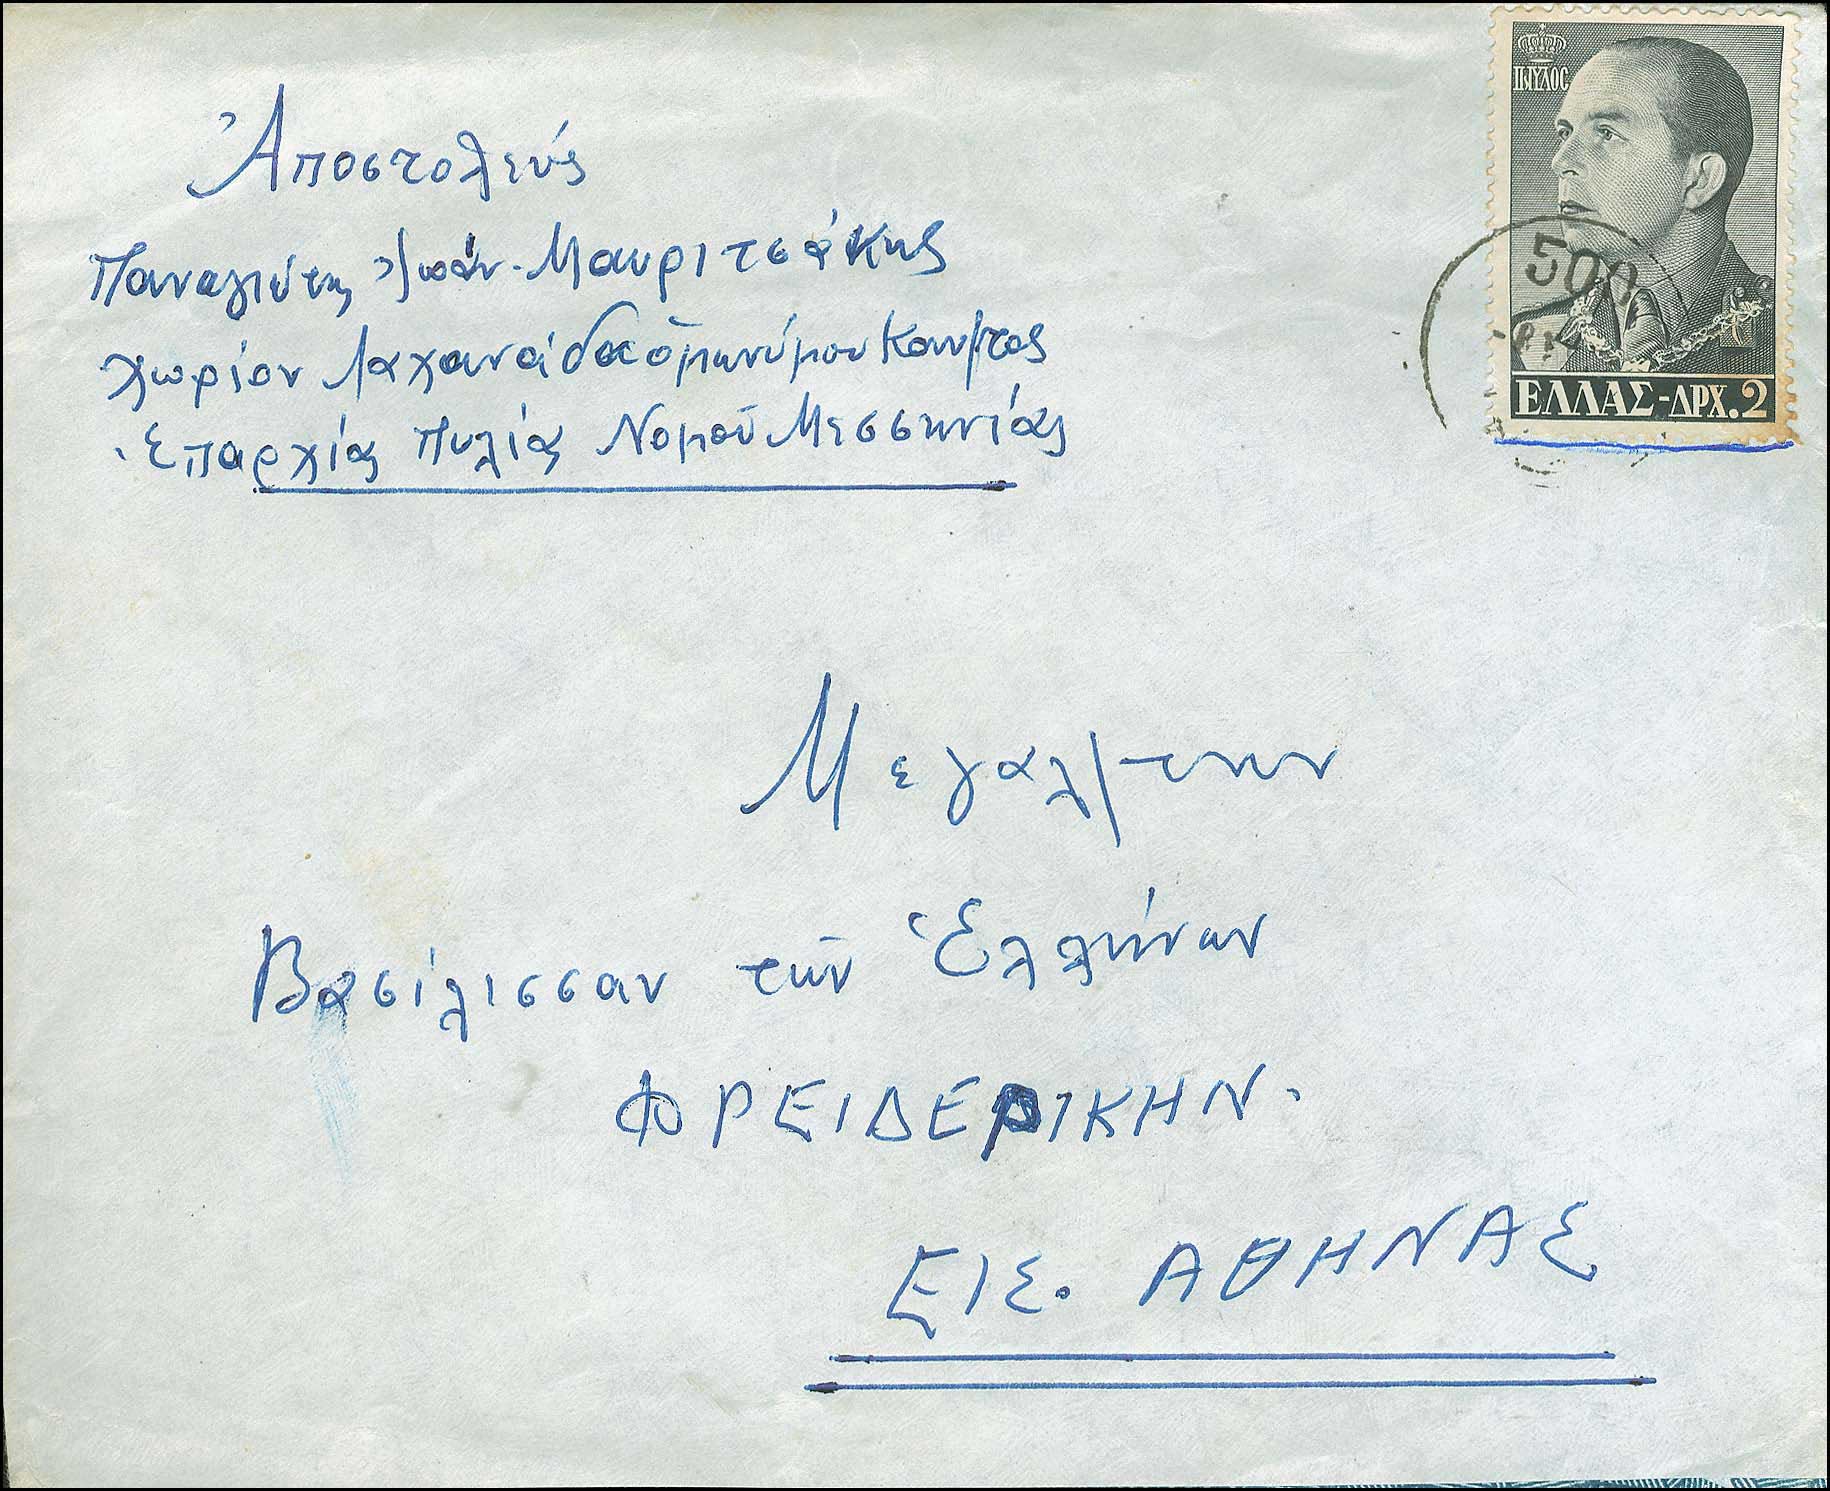 Ἀποστολεύς
Παναγιώτης Ἰωάν. Μαυριτσάκης
χωρίον Λαχανάδα ὁμωνύμου Κοιν/τος
Ἐπαρχίας Πυλίας Νομοῦ Μεσσηνίας
ΠΑΥΛΟΣ
500
ΕΛΛΑΣ-ΔΡΧ.2
Μεγαλ/τηνν
Βασίλισσαν τῶν Ἑλλήνων
ΦΡΕΙΔΕΡΙΚΗΝ.
ΕΙΣ. ΑΘΗΝΑΣ